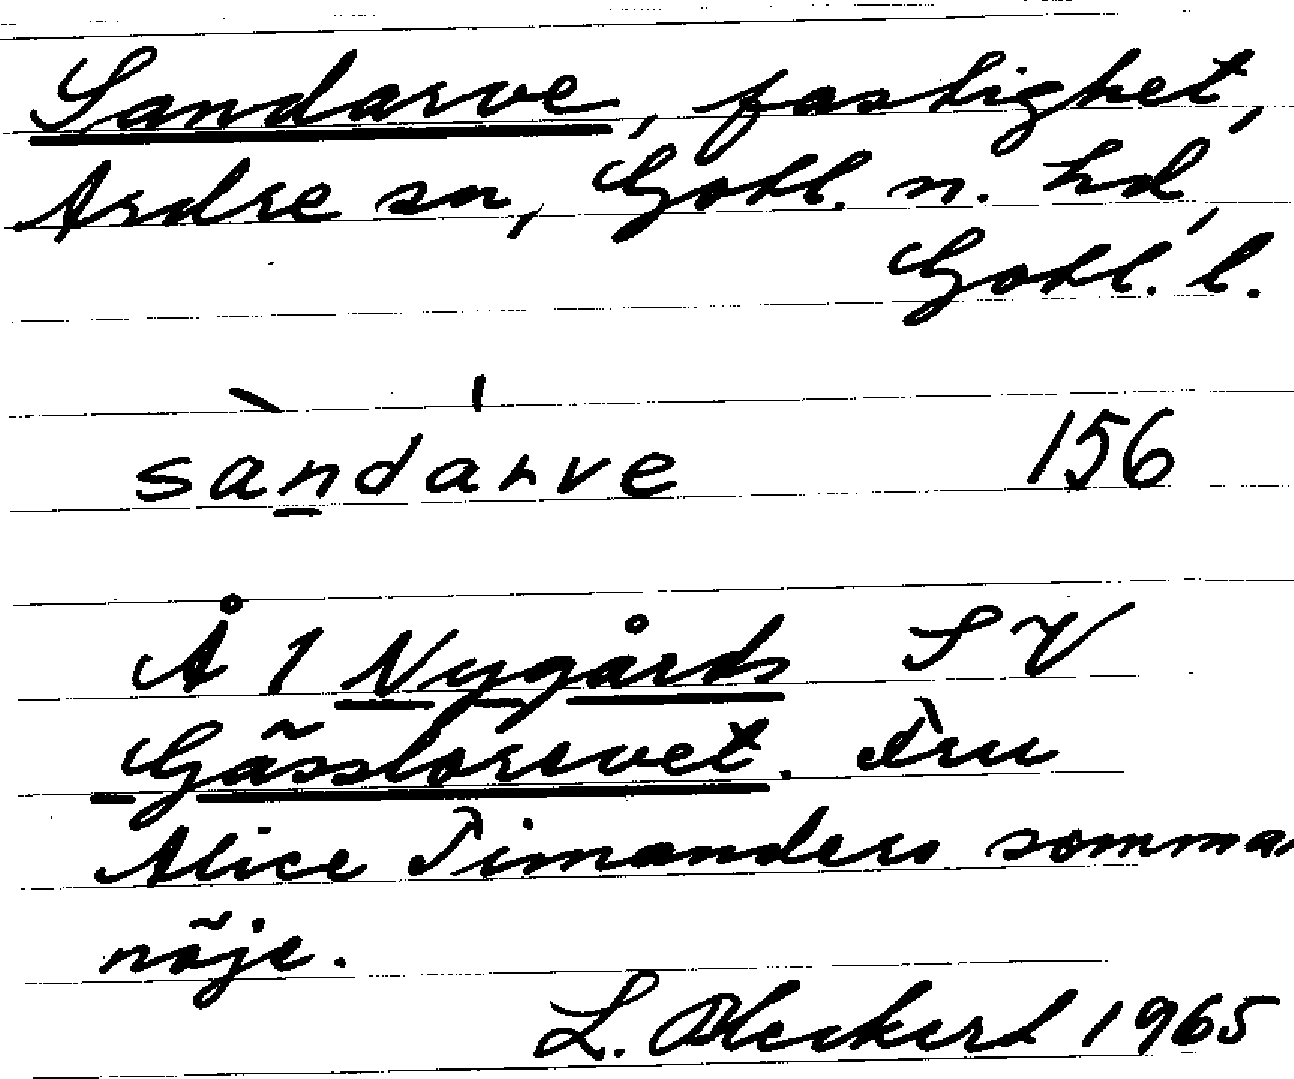 Sandarve, fastighet,
Ardre sn, Gotl. n. hd,
Gotl. l.
sàndárve 156
Å 1 Nygårds SV
Gässlorsvet. Fru
Alice Timanders sommar
nöje.
L. Bleckert 1965